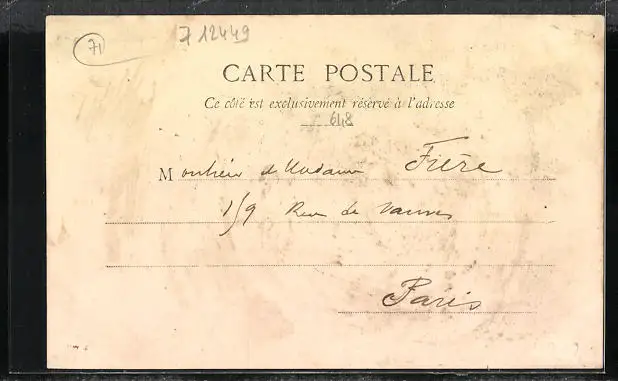 71
7 12449
CARTE POSTALE
Ce côté est exclusivement réservé à l'adresse
648
Monsieur et Madame Frère
119 Rue de Vanves
Paris